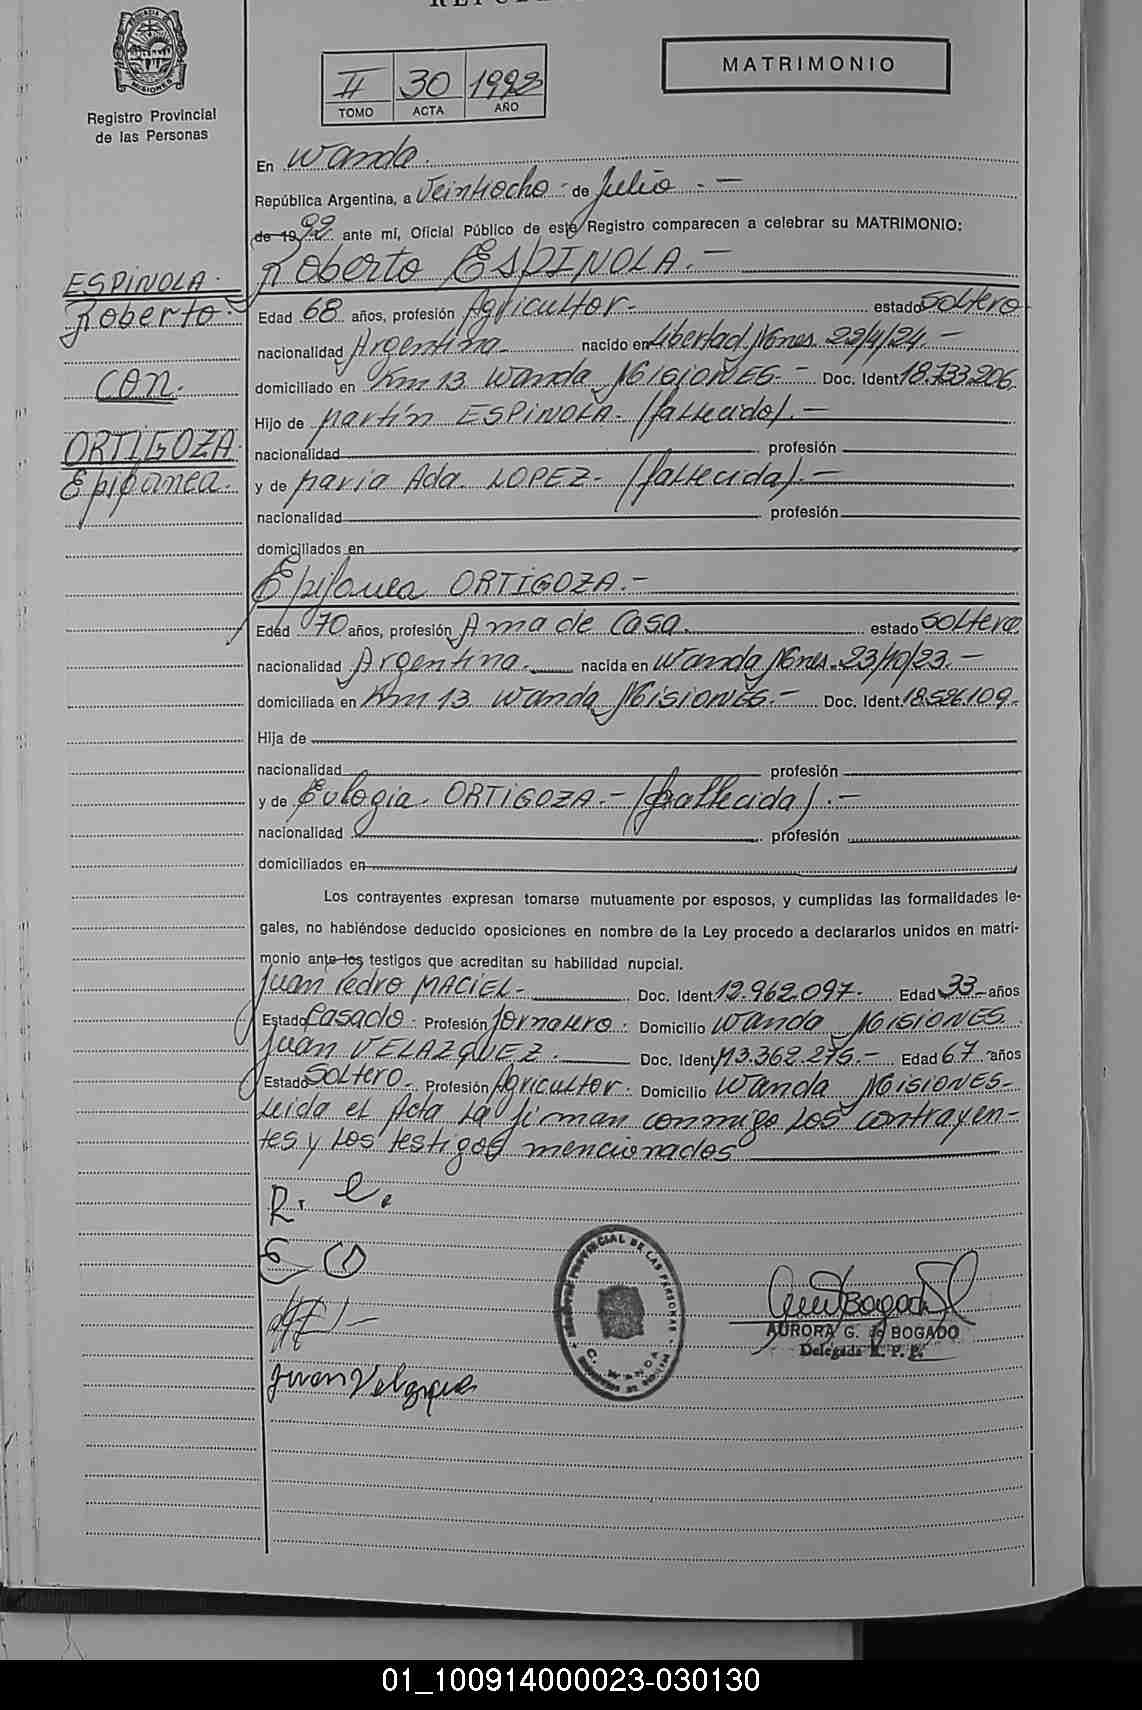 PROVINCIA DE
MISIONES
Registro Provincial
de las Personas
II 30 1992
TOMO ACTA AÑO
MATRIMONIO
En Wanda.
República Argentina, a Veintiocho - de Julio . -
de 19 92 ante mí, Oficial Público de este Registro comparecen a celebrar su MATRIMONIO:
Roberto ESPINOLA. -
ESPINOLA.
Roberto.
CON.
ORTIGOZA.
Epifanea.
Edad 68 años, profesión Agricultor. estado Soltero
nacionalidad Argentina. nacido en Libertad Mnes. 22/4/24. -
domiciliado en Km 13 Wanda MISIONES. - Doc. Ident. 18.733.206.
Hijo de Martín ESPINOLA. (fallecido). -
nacionalidad profesión
y de María Ada. LOPEZ. (fallecida). -
nacionalidad profesión
domiciliados en
Epifanea ORTIGOZA. -
Edad 70 años, profesión Ama de Casa. estado Soltera.
nacionalidad Argentina. nacida en Wanda Mnes. 23/10/23. -
domiciliada en Km 13 Wanda Misiones. - Doc. Ident. 18.526.109.
Hija de
nacionalidad profesión
y de Eulogia. ORTIGOZA. - (fallecida). -
nacionalidad profesión
domiciliados en
Los contrayentes expresan tomarse mutuamente por esposos, y cumplidas las formalidades le-
gales, no habiéndose deducido oposiciones en nombre de la Ley procedo a declararlos unidos en matri-
monio ante los testigos que acreditan su habilidad nupcial.
Juan Pedro MACIEL. Doc. Ident. 12.962.097. Edad 33 años
Estado Casado. Profesión Jornalero. Domicilio Wanda MISIONES.
Juan VELAZQUEZ. Doc. Ident. M3.362.275. - Edad 67 años
Estado Soltero. Profesión Agricultor. Domicilio Wanda MISIONES.
Leida el Acta la firman conmigo los contrayen-
tes y los testigos mencionados
R. e.
E O
Juan Velazquez
AURORA G. de BOGADO
Delegada R. P. P.
01_100914000023-030130